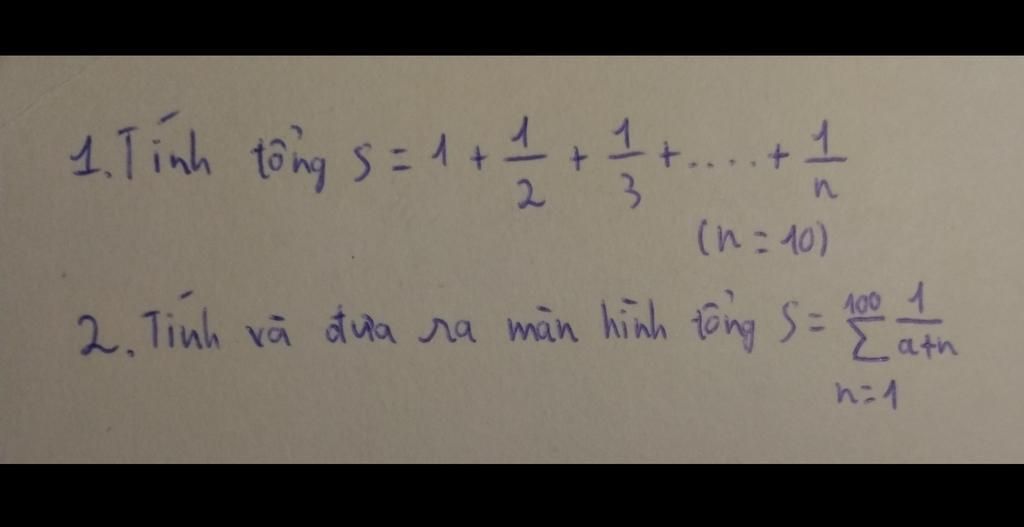 1. Tính tổng S = 1 + 1/2 + 1/3 + .... + 1/n
(n = 10)
2. Tính và đưa ra màn hình tổng S = 100∑n=1 1/a+n